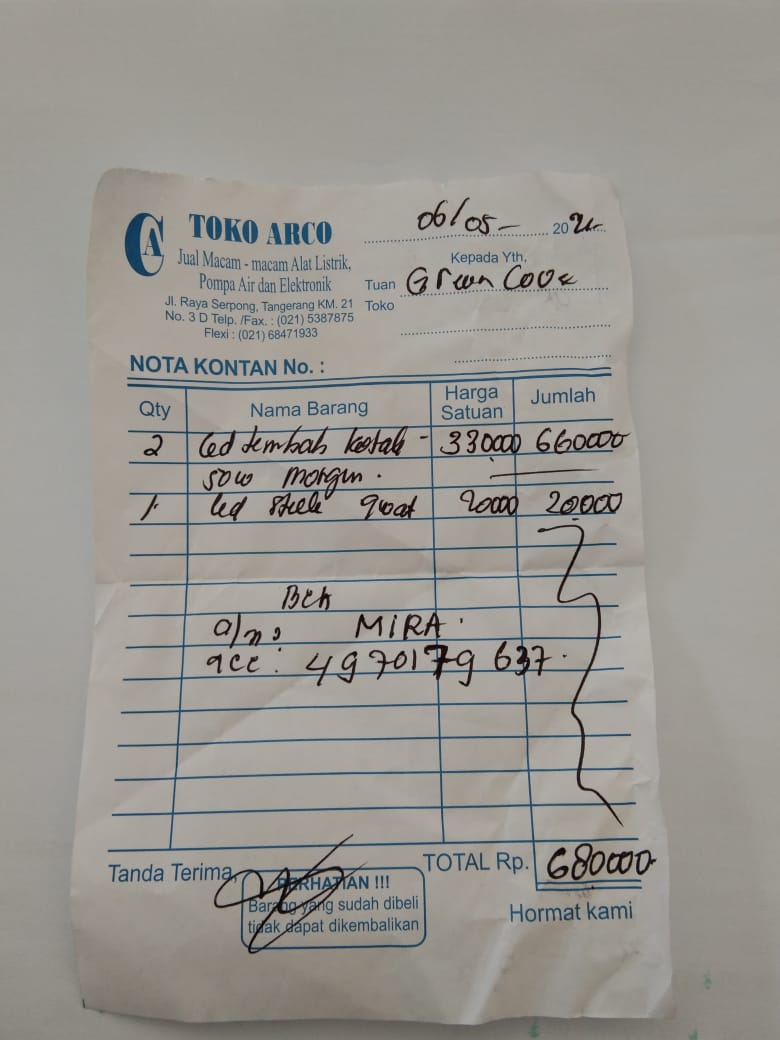 CA TOKO ARCO
Jual Macam - macam Alat Listrik,
Pompa Air dan Elektronik
Jl. Raya Serpong, Tangerang KM. 21
No. 3 D Telp. /Fax. : (021) 5387875
Flexi : (021) 68471933
06/05- 20
Kepada Yth,
Tuan Green Cove
Toko
NOTA KONTAN No. :
Qty Nama Barang Harga Satuan Jumlah
2 led tembak kotak - 330000 660000
50w
1. led 9watt 20000 20000
a/n: MIRA.
acc: 4970179637.
Tanda Terima,
TOTAL Rp. 680000-
PERHATIAN !!!
Barang yang sudah dibeli
tidak dapat dikembalikan
Hormat kami